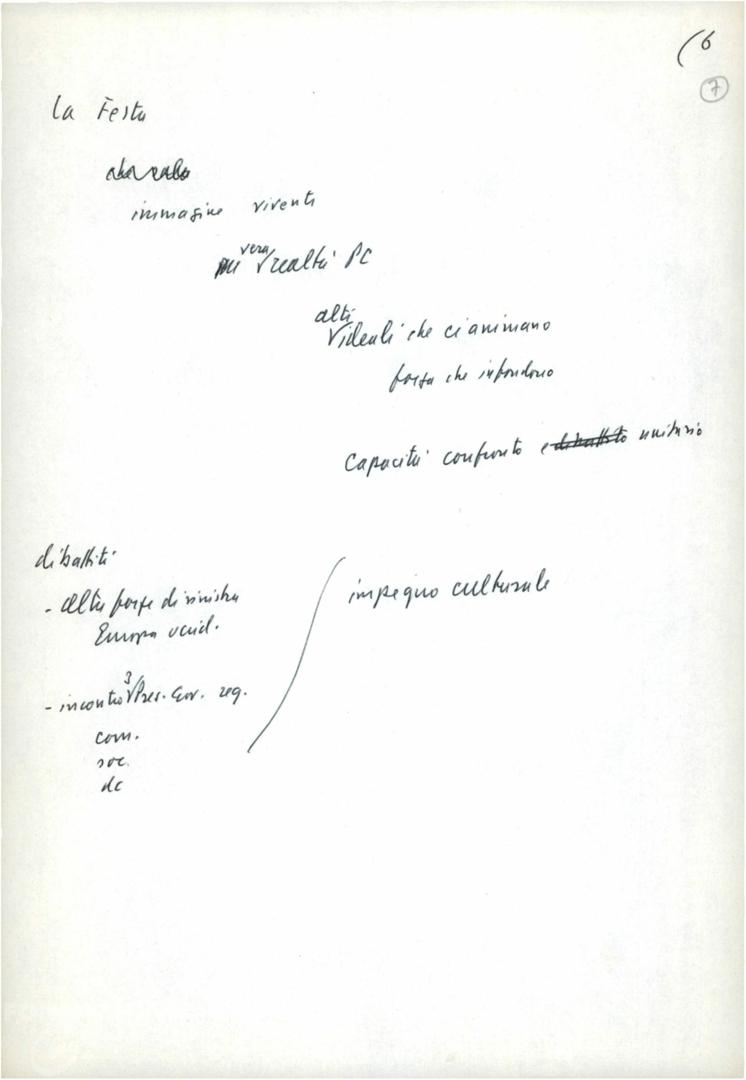 (6
7
la Festa
immagine vivente
vera realtà PC
alti
ideali che ci animano
forza che infondono
Capacità confronto e dibattito unitario
dibattiti
- altre forze di sinistra
Europa occid.
- incontro 3 Pres. Gov. reg.
com.
soc.
dc
impegno culturale